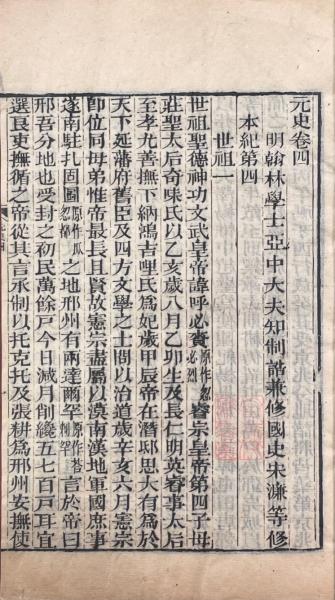 元史卷四
明翰林學士亞中大夫知制誥兼修國史宋濂等修
本紀第四
世祖一
世祖聖德神功文武皇帝諱呼必賚原作忽必烈睿宗皇帝第四子母
莊聖太后奇味氏以乙亥歲八月乙卯生及長仁明英睿事太后
至孝尤善撫下納鴻吉哩氏爲妃歲甲辰帝在潛邸思大有爲於
天下延藩府舊臣及四方文學之士問以治道歲辛亥六月憲宗
即位同母弟惟帝最長且賢故憲宗盡屬以漠南漢地軍國庶事
遂南駐扎固圖原作爪忽都之地邢州有兩達爾罕原作荅剌罕言於帝曰
邢吾分地也受封之初民萬餘戶今日減月削纔五七百戶耳宜
選良吏撫循之帝從其言承制以托克托及張耕爲邢州安撫使